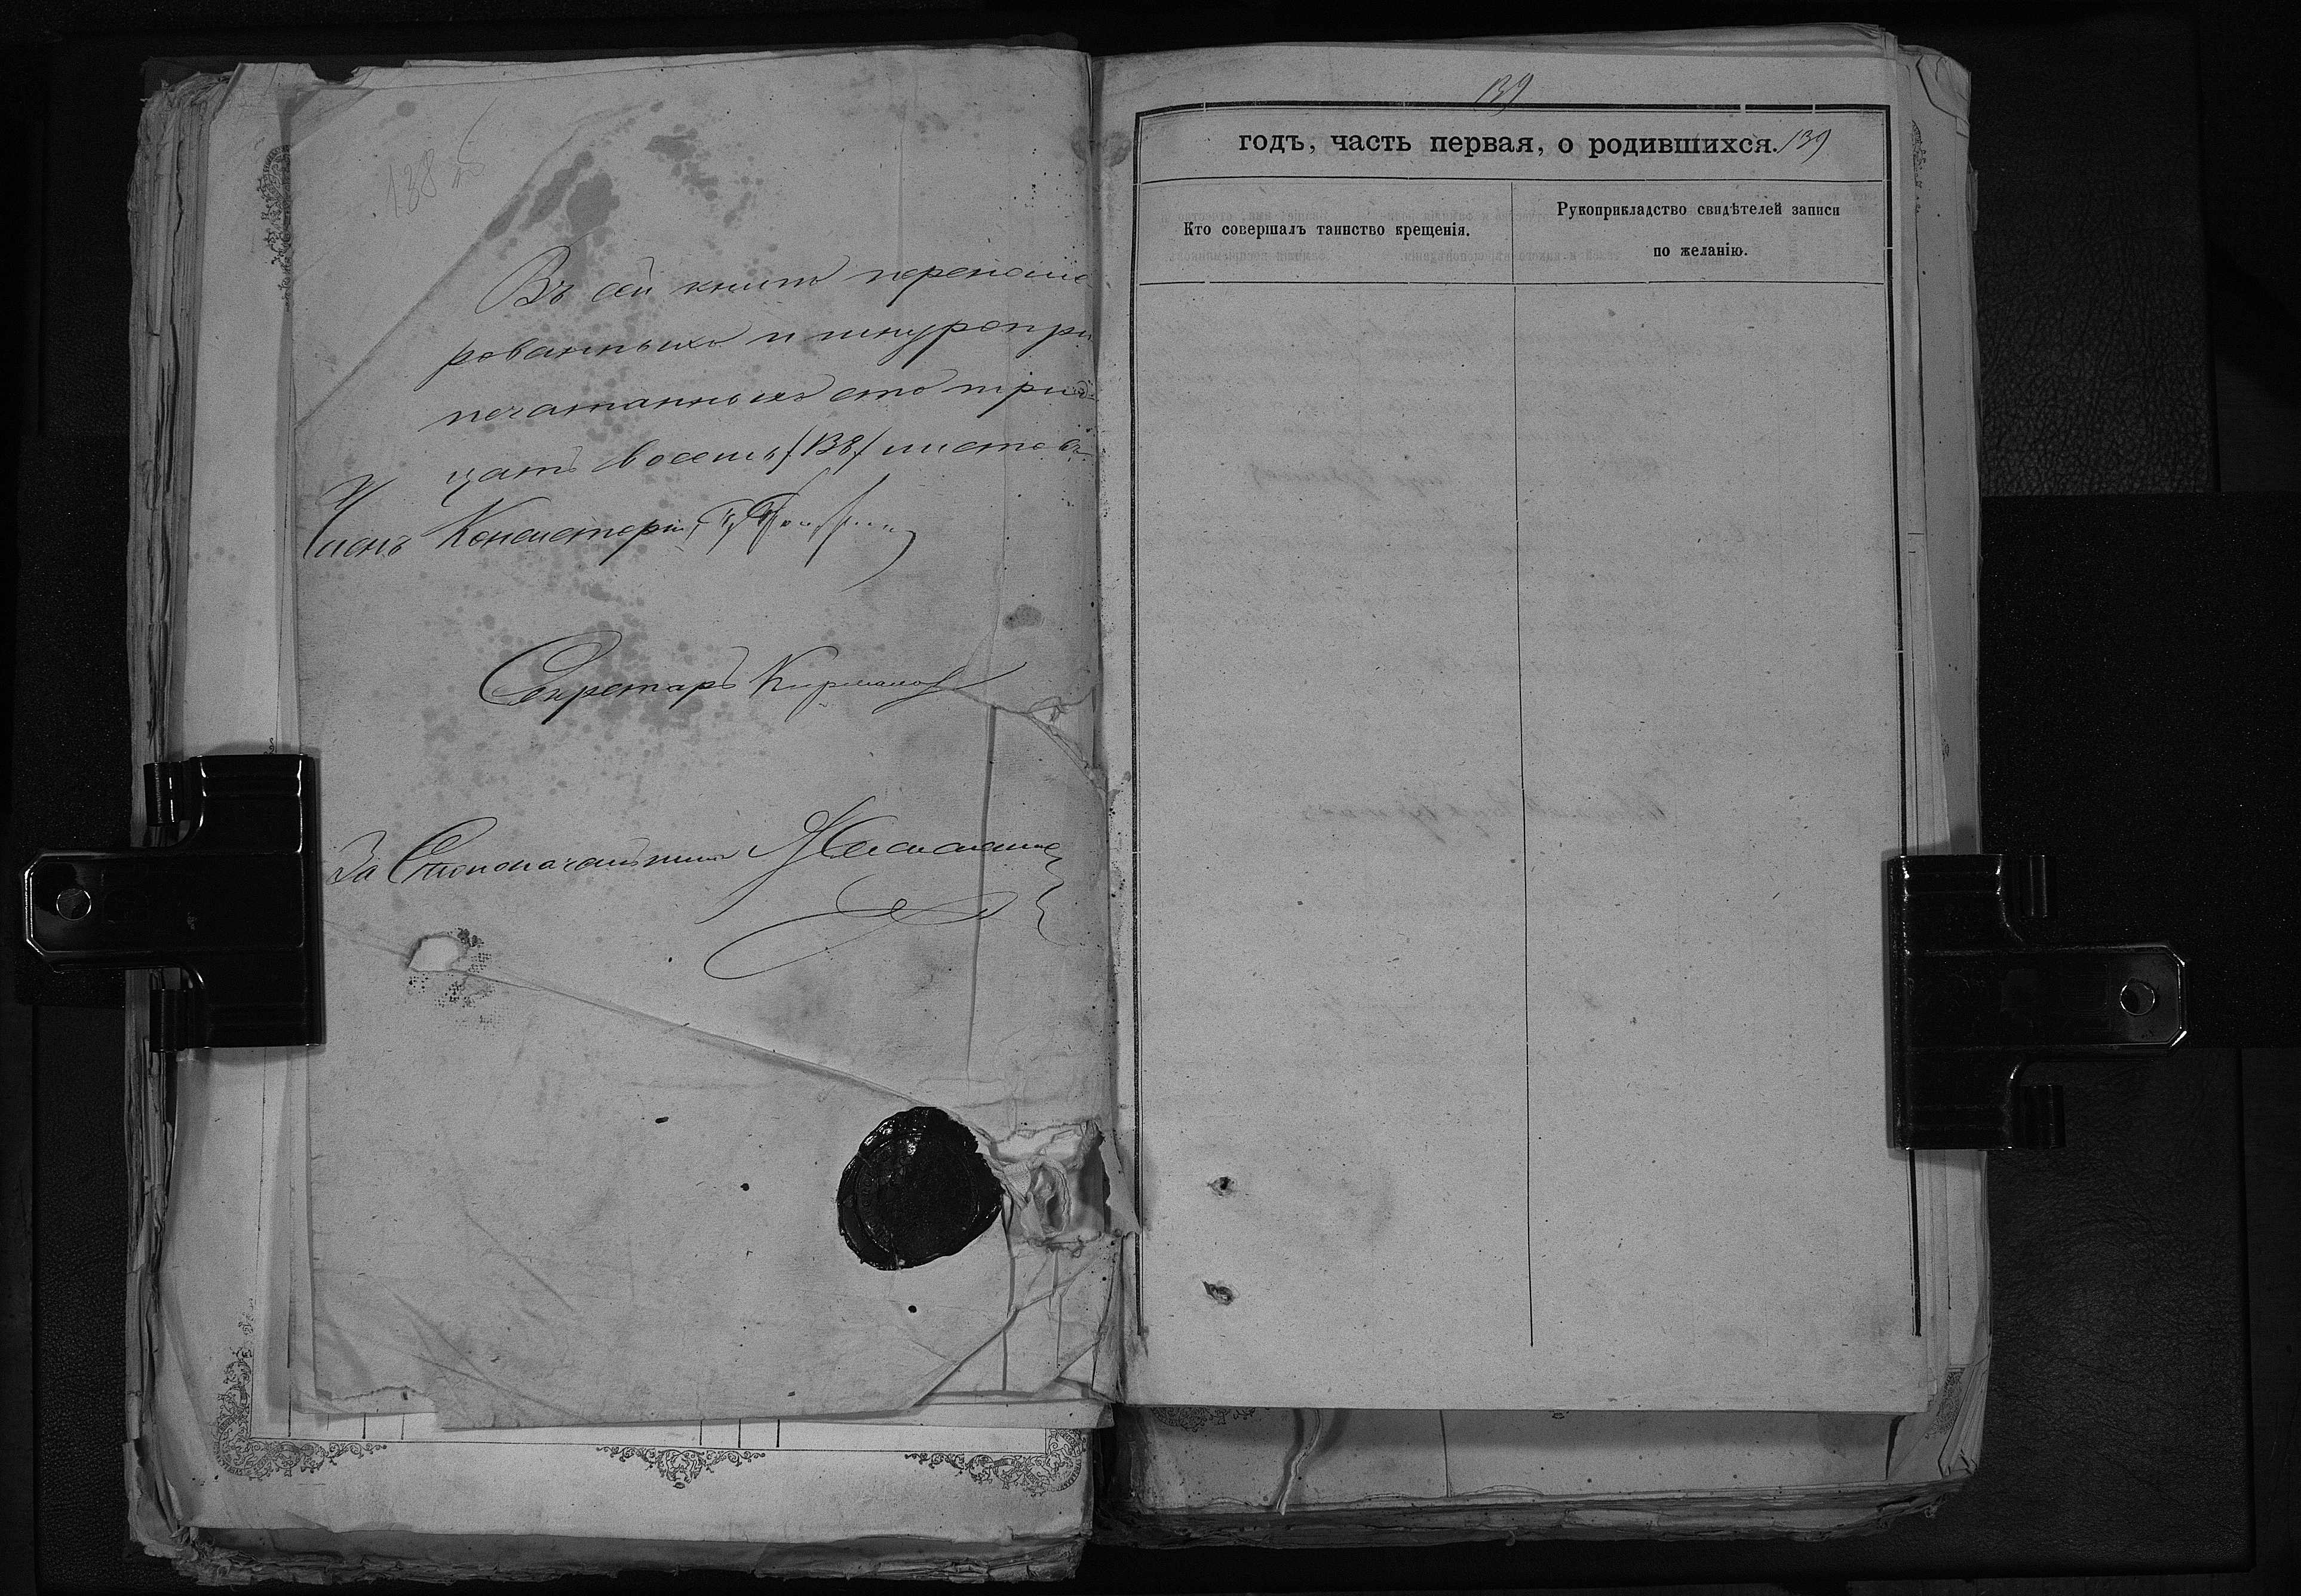 138 об
Въ сей книгѣ перенуме
рованныхъ и шнуропри
печатанныхъ сто трид
цать восемь /138/ листовъ
Членъ Консисторіи
Секретарь
За Столоначальника
139
годъ, часть первая, о родившихся. 139
Кто совершалъ таинство крещенія.
Рукоприкладство свидѣтелей записи
по желанію.